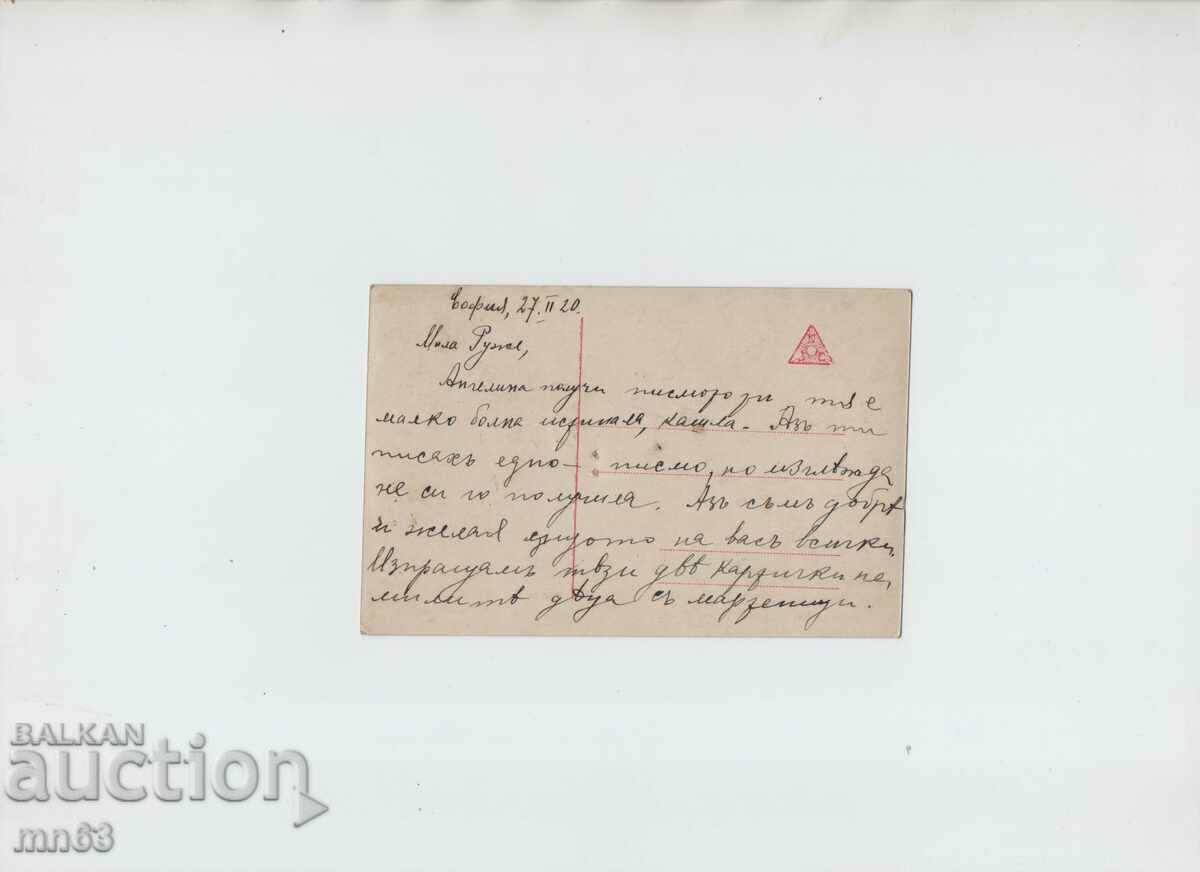 София, 27.II 20.
Мила Руже,
Ангелина получи писмото ти тя е
малко болна, кашля. Азъ ти
писахъ едно писмо, но изглѣжда
не си го получила. Азъ съмъ добрѣ
и желая на васъ всички.
Изпращамъ тѣзи двѣ картички на
милитѣ дѣца съ мартеници.
BALKAN
auction
mn63